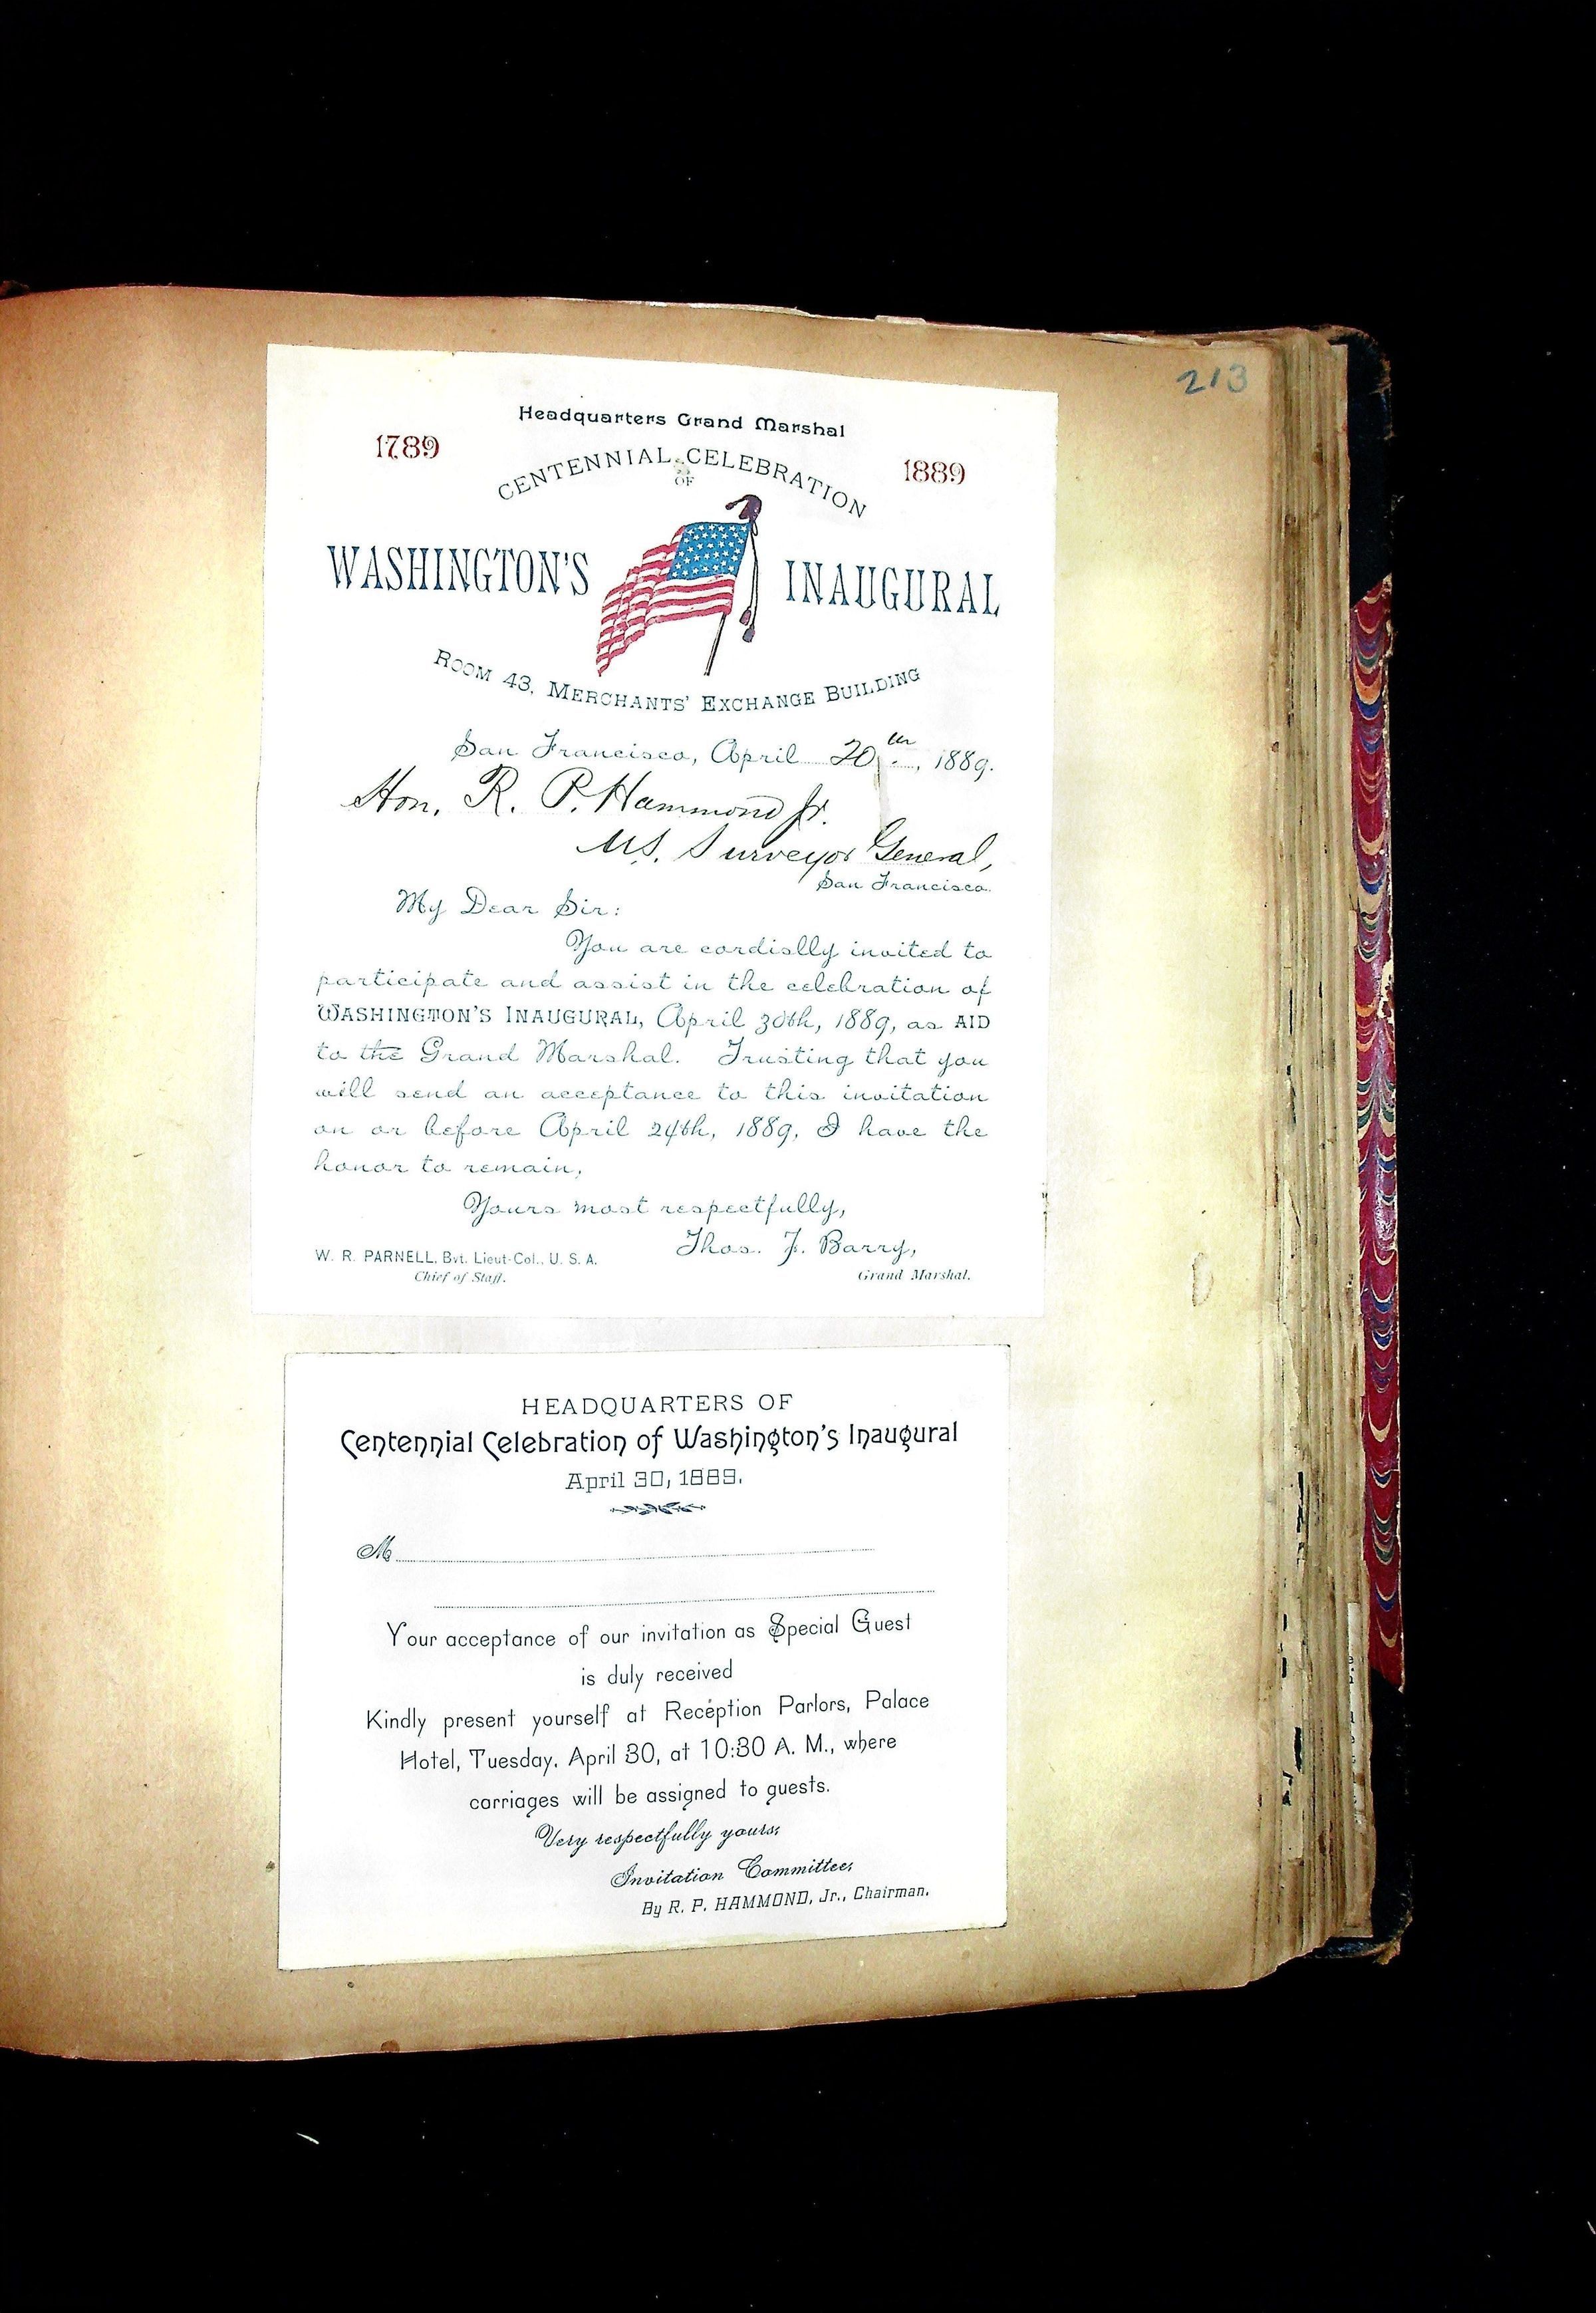 213
Headquarters Grand Marshal
1789
1889
CENTENNIAL CELEBRATION
OF
WASHINGTON'S INAUGURAL
ROOM 43, MERCHANTS' EXCHANGE BUILDING
San Francisco, April 20th, 1889.
Hon. R. P. Hammond Jr.
U.S. Surveyor General,
San Francisco.
My Dear Sir:
You are cordislly invited to
participate and assist in the celebration of
WASHINGTON'S INAUGURAL, April 30th, 1889, as AID
to the Grand Marshal. Trusting that you
will send an acceptance to this invitation
on or before April 24th, 1889, I have the
honor to remain,
Yours most respectfully,
Thos. J. Barry,
Grand Marshal.
W. R. PARNELL, Bvt. Lieut-Col., U. S. A.
Chief of Staff.
HEADQUARTERS OF
Centennial Celebration of Washington's Inaugural
April 30, 1889.
M
Your acceptance of our invitation as Special Guest
is duly received
Kindly present yourself at Reception Parlors, Palace
Hotel, Tuesday, April 30, at 10:30 A. M., where
carriages will be assigned to guests.
Very respectfully yours,
Invitation Committee,
By R. P. HAMMOND, Jr., Chairman.